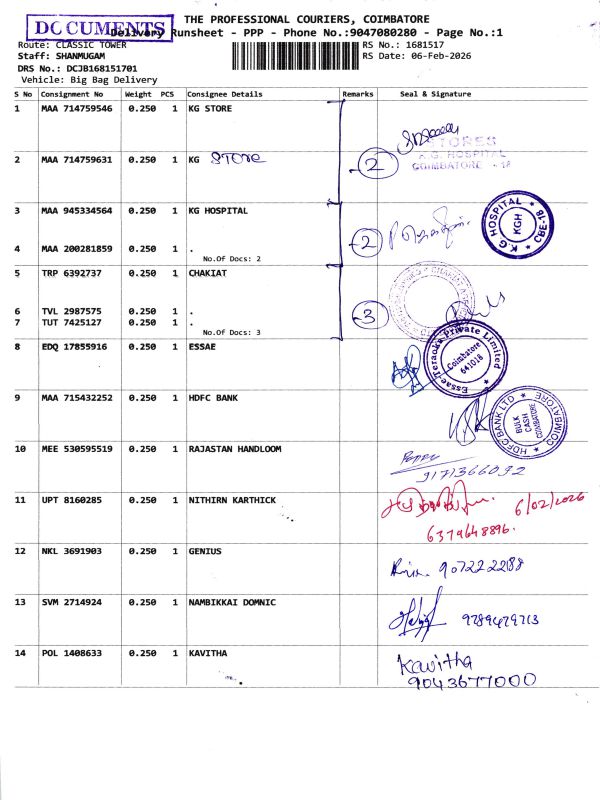 THE PROFESSIONAL COURIERS, COIMBATORE
DOCUMENTS
Delivery Runsheet - PPP - Phone No.:9047080280 - Page No.:1
Route: CLASSIC TOWER RS No.: 1681517
Staff: SHANMUGAM RS Date: 06-Feb-2026
DRS No.: DCJB168151701
Vehicle: Big Bag Delivery
S No Consignment No Weight PCS Consignee Details Remarks Seal & Signature
1 MAA 714759546 0.250 1 KG STORE
STORES
K.G. HOSPITAL
COIMBATORE - 18
2 MAA 714759631 0.250 1 KG STORE -2
3 MAA 945334564 0.250 1 KG HOSPITAL
K.G HOSPITAL KGH CBE-18
-2
4 MAA 200281859 0.250 1 .
No.Of Docs: 2
5 TRP 6392737 0.250 1 CHAKIAT
-3
6 TVL 2987575 0.250 1 .
7 TUT 7425127 0.250 1 .
No.Of Docs: 3
8 EDQ 17855916 0.250 1 ESSAE
Essae-Teraoka Private Limited
Coimbatore
641018
9 MAA 715432252 0.250 1 HDFC BANK
HDFC BANK LTD COIMBATORE
BULK
CASH
COIMBATORE
10 MEE 530595519 0.250 1 RAJASTAN HANDLOOM
9171366092
11 UPT 8160285 0.250 1 NITHIRN KARTHICK
6/02/2026
6379648896.
12 NKL 3691903 0.250 1 GENIUS
907222288
13 SVM 2714924 0.250 1 NAMBIKKAI DOMNIC
9789479713
14 POL 1408633 0.250 1 KAVITHA
Kavitha
9043677000